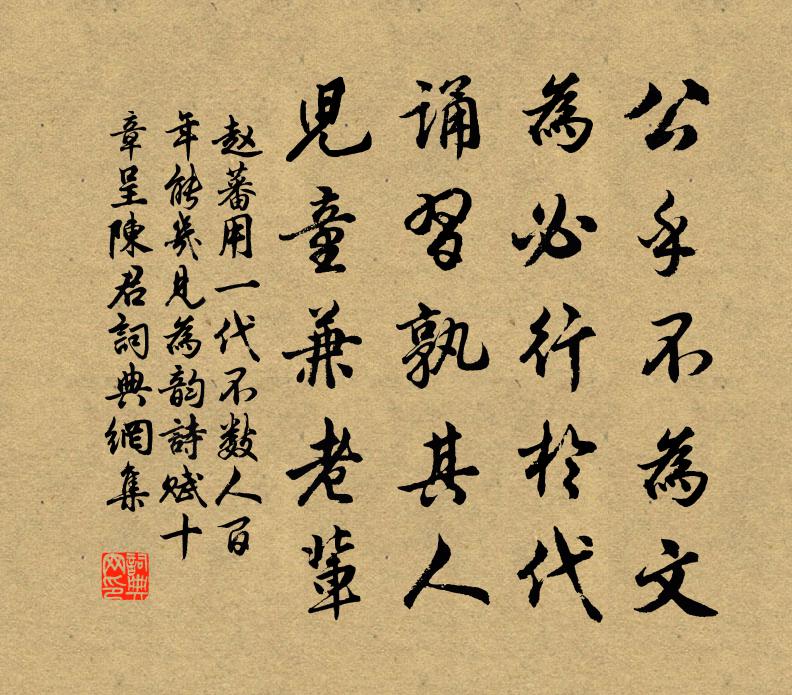 公乎不為文
為必行於代
誦習孰其人
兒童兼老輩
赵蕃用一代不数人百
年能幾見為韵詩赋十
章呈陳君詞典網集
詞典
网印